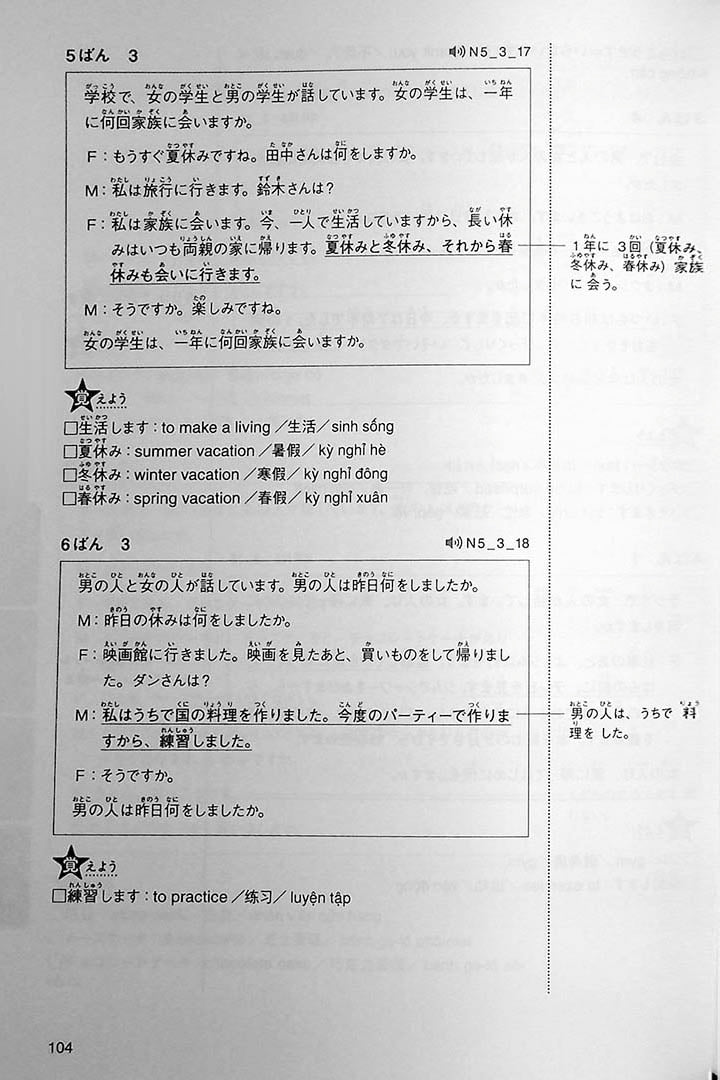 5ばん 3
N5_3_17
学校で、女の学生と男の学生が話しています。女の学生は、一年
に何回家族に会いますか。
F:もうすぐ夏休みですね。田中さんは何をしますか。
M:私は旅行に行きます。鈴木さんは?
F:私は家族に会います。今、一人で生活していますから、長い休
みはいつも両親の家に帰ります。夏休みと冬休み、それから春
休みも会いに行きます。
1年に 3回(夏休み、
冬休み、春休み)家族
に 会う。
M:そうですか。楽しみですね。
女の学生は、一年に何回家族に会いますか。
覚えよう
□生活します:to make a living/生活/sinh sống
□夏休み:summer vacation/暑假/kỳ nghỉ hè
□冬休み:winter vacation/寒假/kỳ nghỉ đông
□春休み:spring vacation/春假/kỳ nghỉ xuân
6ばん 3
N5_3_18
男の人と女の人が話しています。男の人は昨日何をしましたか。
M:昨日の休みは何をしましたか。
F:映画館に行きました。映画を見たあと、買いものをして帰りまし
た。ダンさんは?
M:私はうちで国の料理を作りました。今度のパーティーで作りま
すから、練習しました。
男の人は、うちで 料
理を した。
F:そうですか。
男の人は昨日何をしましたか。
覚えよう
□練習します:to practice/练习/luyện tập
104